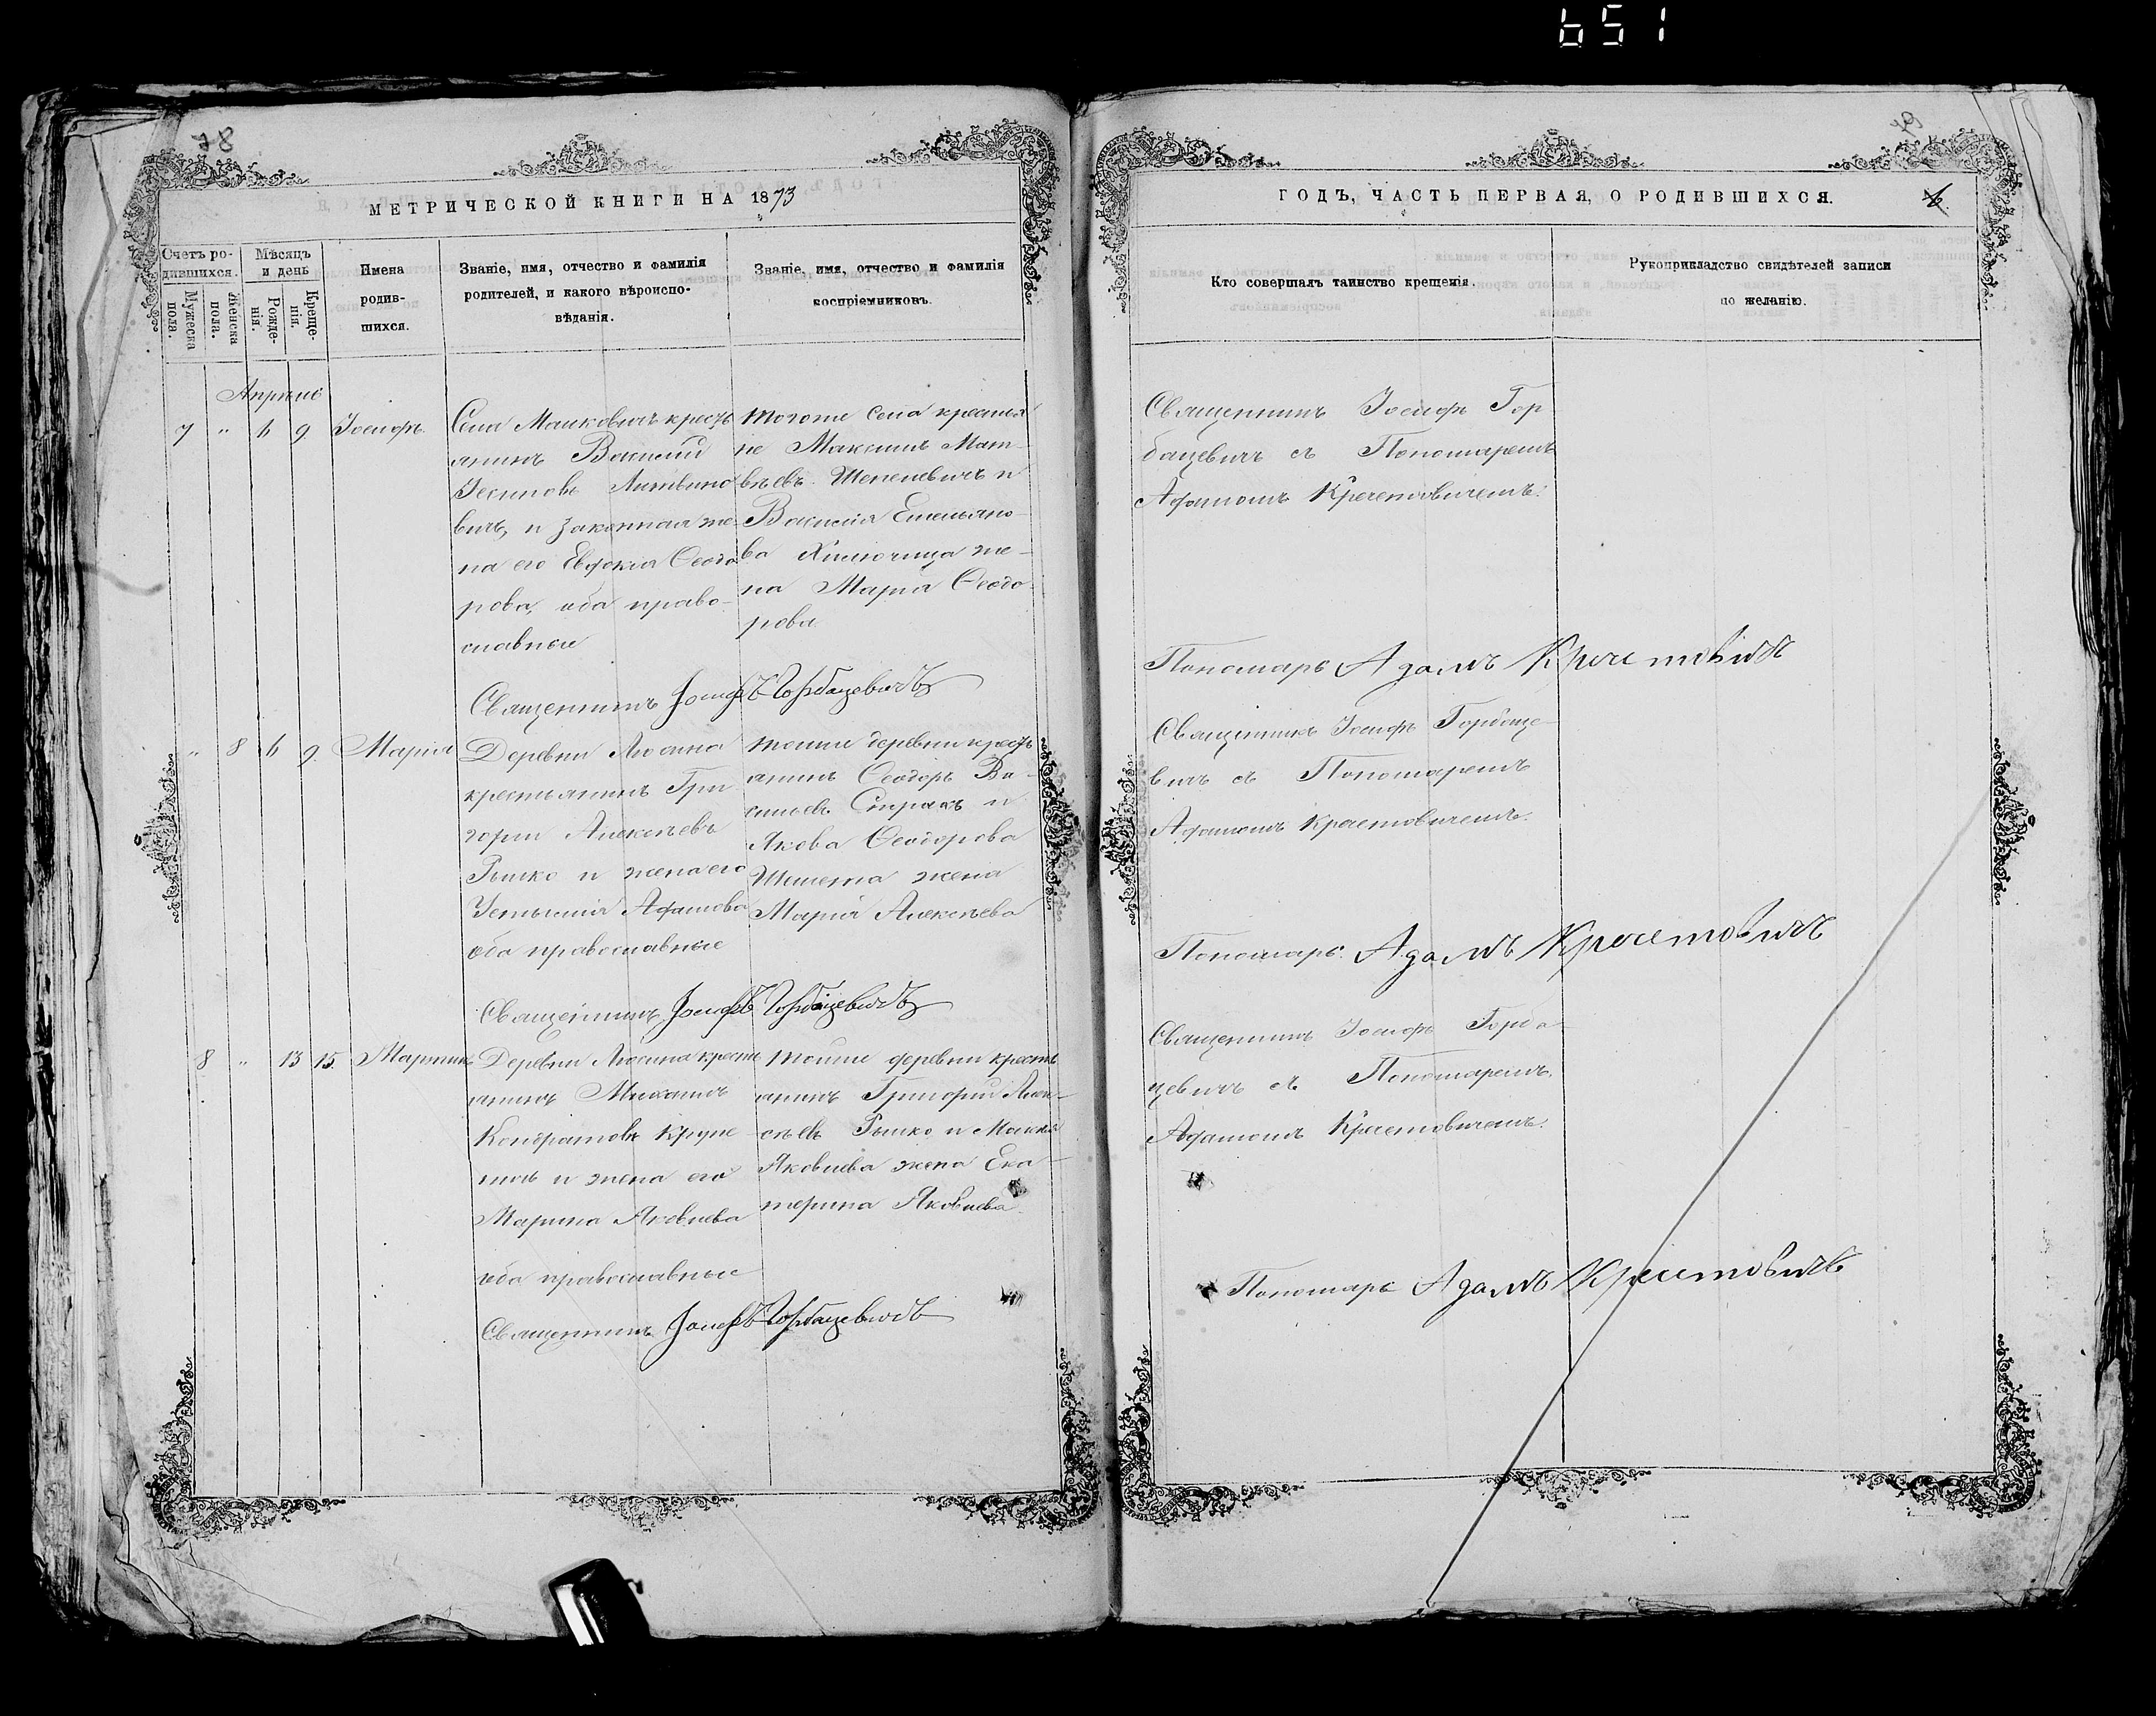 651
78
МЕТРИЧЕСКОЙ КНИГИ НА 1873
Счетъ ро-
дившихся.
Мужеска пола.
Женска пола.
Мѣсяцъ
и день
Рожде-
нія.
Креще-
нія.
Имена
родив-
шихся.
Званіе, имя, отчество и фамилія
родителей, и какого вѣроиспо-
вѣданія.
Званіе, имя, отчество и фамилія
воспріемниковъ.
Апрѣль
7 „ 6 9 Іосифъ.
Села Малковичъ кресть
янинъ Василій
Іосифовъ Литвино
вичъ, и законная же-
на его Евдокія Ѳеодо
рова, оба право-
славные
Тогоже села крестья
не Максимъ Мат-
вѣевъ Шепелевичъ и
Василія Емельяно-
ва жена
на Марія Ѳеодо-
рова.
Священникъ Іосифъ Горбацевичъ
„ 8 6 9 Марія
Деревни Люсина
крестьянинъ Гри
горій Алексѣевъ
Рышко и жена его
Устинія Адамова
оба православные
Тойже деревни кресть
янинъ Ѳеодоръ Ва-
сильевъ Страхъ и
Якова Ѳеодорова
Шишета жена
Марія Алексѣева
Священникъ Іосифъ Горбацевичъ
8 „ 13 15 Мартинъ
Деревни Люсина кресть
янинъ Михаилъ
Кондратовъ
и жена его
Марина Яковлева
оба православные
Тойже деревни кресть
янинъ Григорій Алек-
сѣевъ Рышко и
Яковлева жена Ека-
терина Яковлева.
Священникъ Іосифъ Горбацевичъ
79
ГОДЪ, ЧАСТЬ ПЕРВАЯ, О РОДИВШИХСЯ.
6.
Кто совершалъ таинство крещенія.
Рукоприкладство свидѣтелей записи
по желанію.
Священникъ Іосифъ Гор
бацевичъ съ Пономаремъ
Адамомъ Кречетовичемъ.
Пономарь Адамъ Кречетовичъ
Священникъ Іосифъ Горбаце-
вичъ съ Пономаремъ
Адамомъ Кречетовичемъ.
Пономарь Адамъ Кречетовичъ
Священникъ Іосифъ Горба-
цевичъ съ Пономаремъ
Адамомъ Кречетовичемъ.
Пономарь Адамъ Кречетовичъ